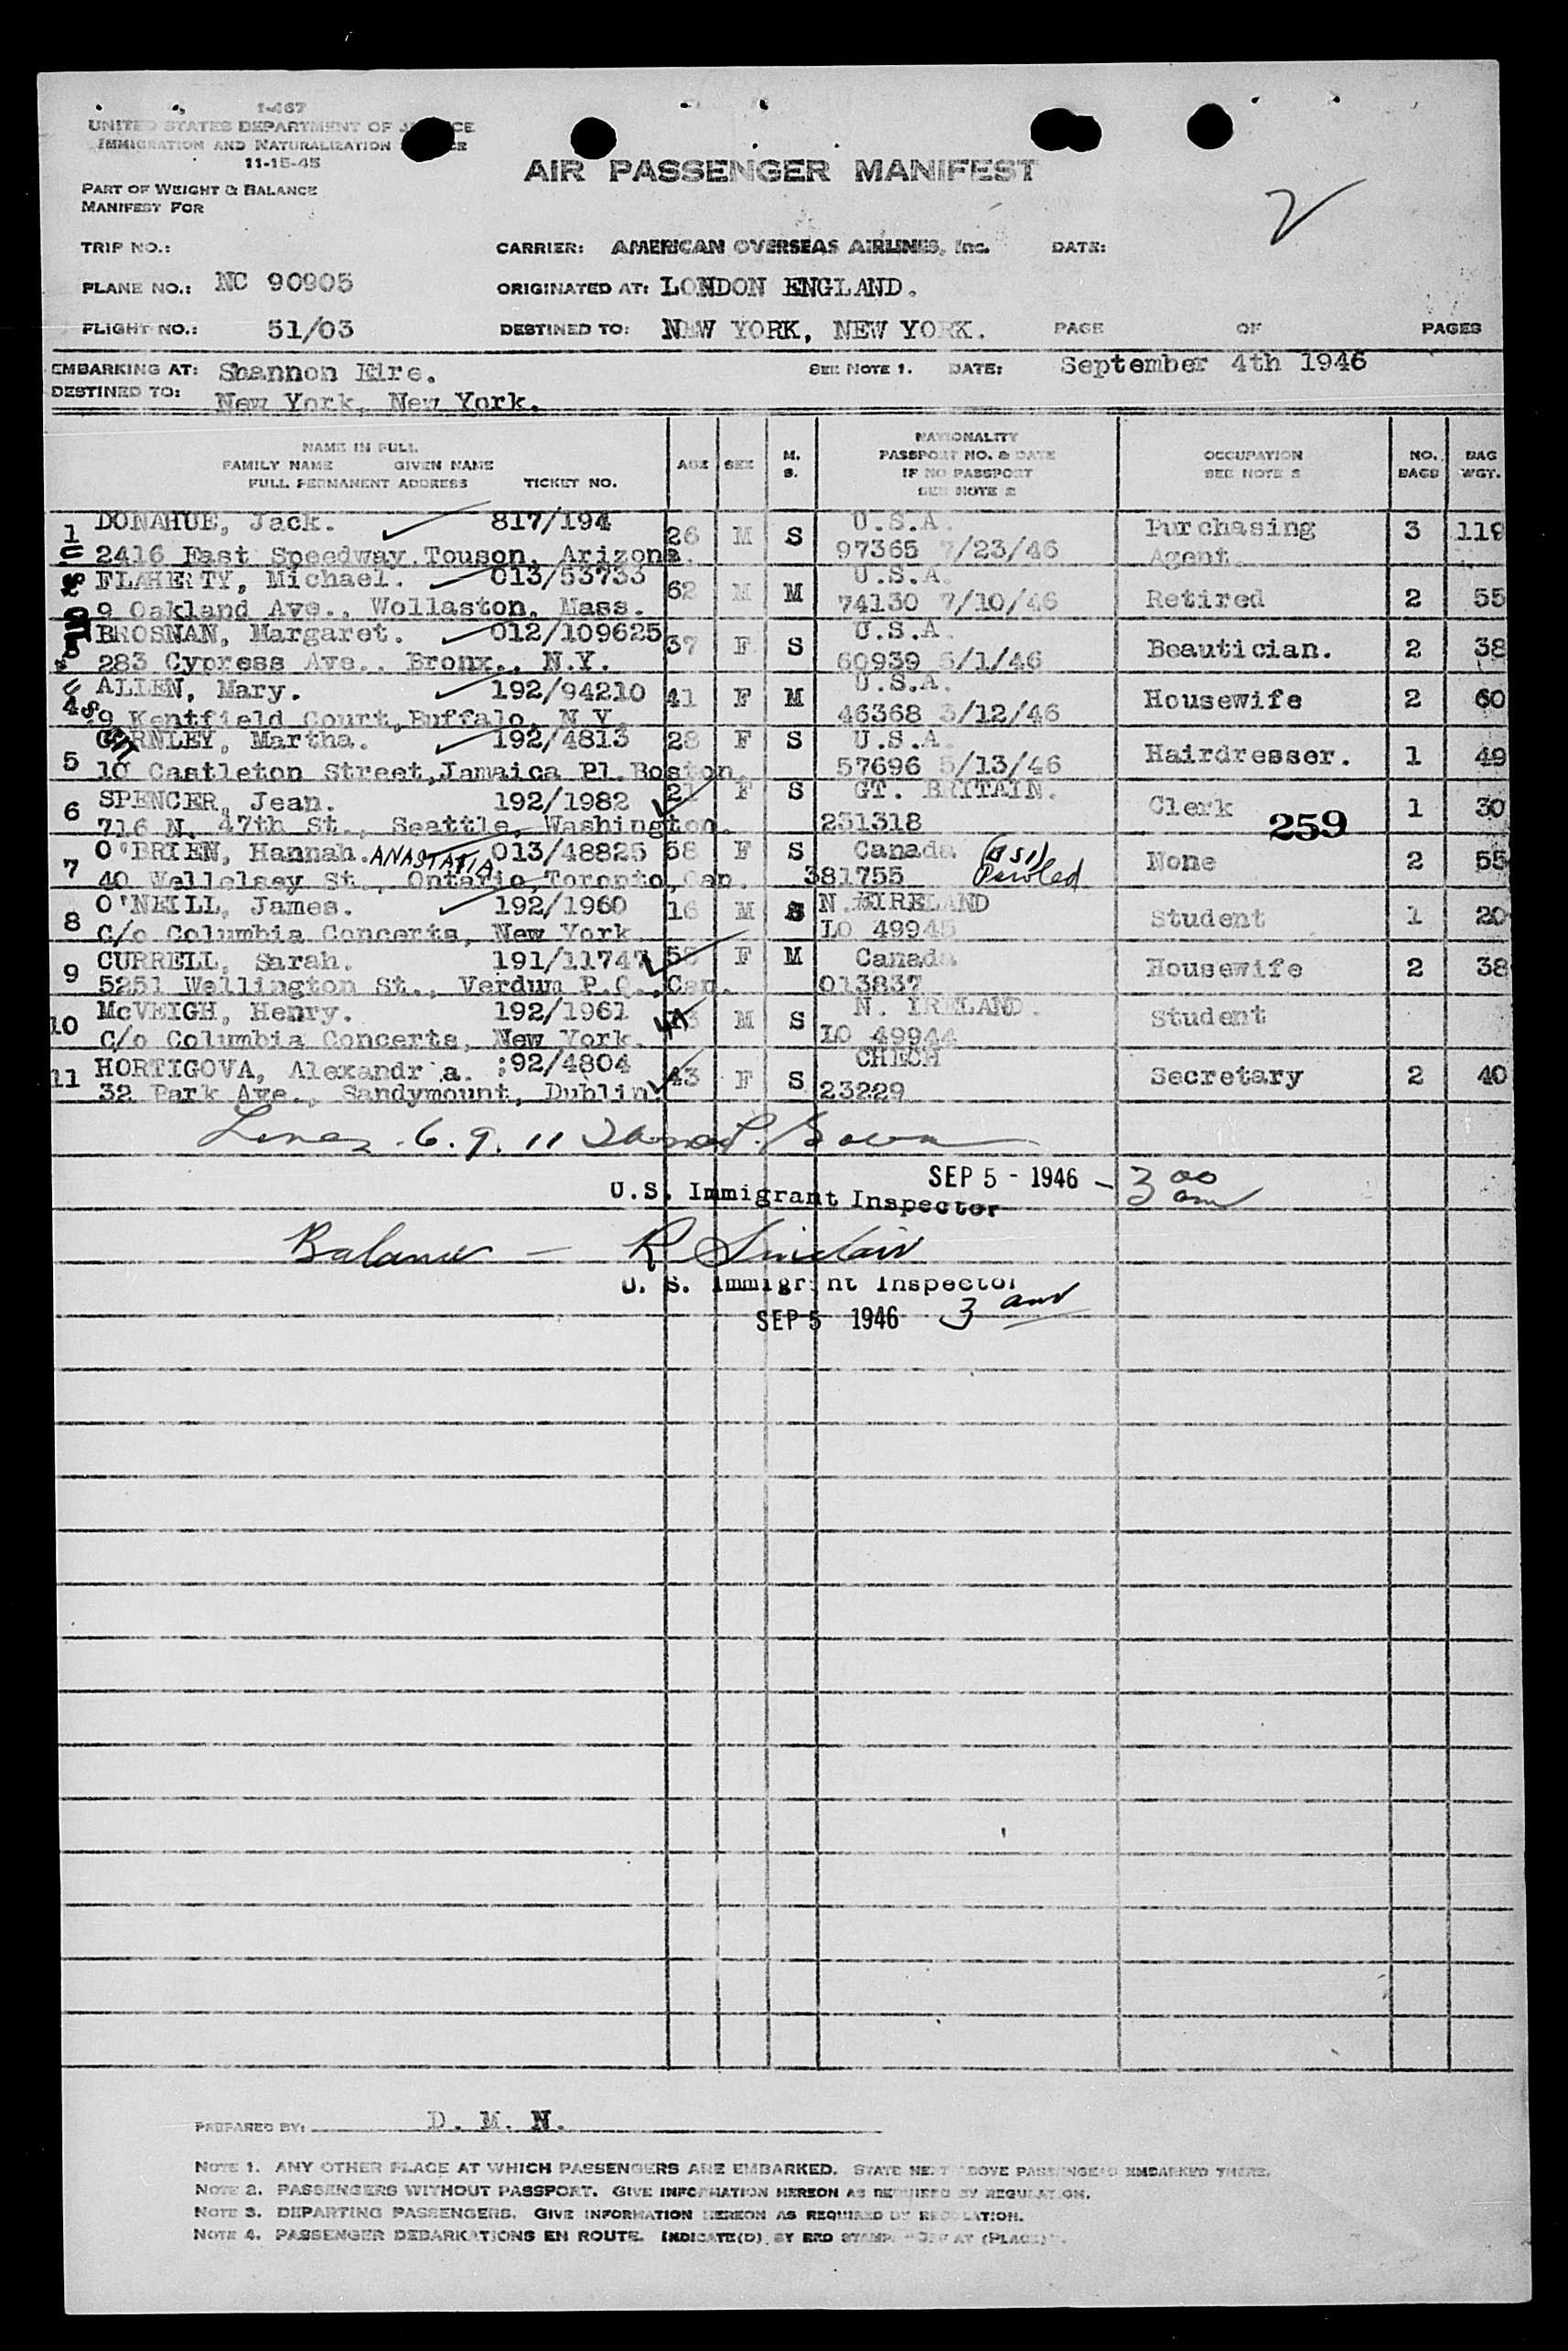 I-467
UNITED STATES DEPARTMENT OF
IMMIGRATION AND NATURALIZATION
11-15-45
AIR PASSENGER MANIFEST
PART OF WEIGHT & BALANCE
MANIFEST FOR
2
TRIP NO.: CARRIER: AMERICAN OVERSEAS AIRLINES, Inc. DATE:
PLANE NO.: NC 90905 ORIGINATED AT: LONDON ENGLAND.
FLIGHT NO.: 51/03 DESTINED TO: NEW YORK, NEW YORK. PAGE OF PAGES
EMBARKING AT: Shannon Eire. SEE NOTE 1. DATE: September 4th 1946
DESTINED TO: New York, New York.
NAME IN FULL
FAMILY NAME GIVEN NAME
FULL PERMANENT ADDRESS TICKET NO. AGE SEX M. S. NATIONALITY PASSPORT NO. & DATE IF NO PASSPORT SEE NOTE 2 OCCUPATION SEE NOTE 3 NO. BAGS BAG WGT.
1 DONAHUE, Jack. 817/194 26 M S U.S.A. Purchasing 3 119
2416 East Speedway.Touson, Arizona. 97365 7/23/46 Agent.
FLAHERTY, Michael. 013/53733 62 M M U.S.A. Retired 2 55
9 Oakland Ave., Wollaston, Mass. 74130 7/10/46
BROSNAN, Margaret. 012/109625 37 F S U.S.A. Beautician. 2 38
283 Cypress Ave., Bronx., N.Y. 60939 5/1/46
4 ALLEN, Mary. 192/94210 41 F M U.S.A. Housewife 2 60
9 Kentfield Court,Buffalo, N.Y. 46368 3/12/46
5 Martha. 192/4813 28 F S U.S.A. Hairdresser. 1 49
10 Castleton Street,Jamaica Pl.Boston. 57696 5/13/46
6 SPENCER, Jean. 192/1982 21 F S GT. BRITAIN. Clerk 1 30
716 N. 47th St., Seattle, Washington. 231318 259
7 O'BRIEN, Hannah. ANASTATIA 013/48825 58 F S Canada (BSI) None 2 55
40 Wellelsey St., Ontario,Toronto,Can. 381755 Paroled
8 O'NEILL, James. 192/1960 16 M S N.IRELAND Student 1 20
C/o Columbia Concerts, New York. LO 49945
9 CURRELL, Sarah. 191/11747 F M Canada Housewife 2 38
5251 Wellington St., Verdum P.Q.,Can. 013837
10 McVEIGH, Henry. 192/1961 M S N. IRELAND. Student
C/o Columbia Concerts, New York. LO 49944
11 HORTIGOVA, Alexandr a. :92/4804 43 F S CHECH Secretary 2 40
32 Park Ave., Sandymount, Dublin. 23229
Lines 6. 9. 11
SEP 5 - 1946 - 3 00 am
U.S. Immigrant Inspector
Balance - R Sinclair
U. S. Immigrant Inspector
SEP 5 1946 3 am
PREPARED BY: D. M. N.
NOTE 1. ANY OTHER PLACE AT WHICH PASSENGERS ARE EMBARKED. STATE NEXT ABOVE PASSENGERS EMBARKED THERE.
NOTE 2. PASSENGERS WITHOUT PASSPORT. GIVE INFORMATION HEREON AS REQUIRED BY REGULATION.
NOTE 3. DEPARTING PASSENGERS. GIVE INFORMATION HEREON AS REQUIRED BY REGULATION.
NOTE 4. PASSENGER DEBARKATIONS EN ROUTE. INDICATE(D) BY RED STAMP "OFF AT (PLACE)".